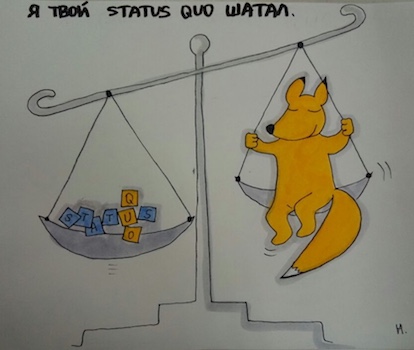 Я ТВОЙ STATUS QUO ШАТАЛ.
Q
STATUS
O